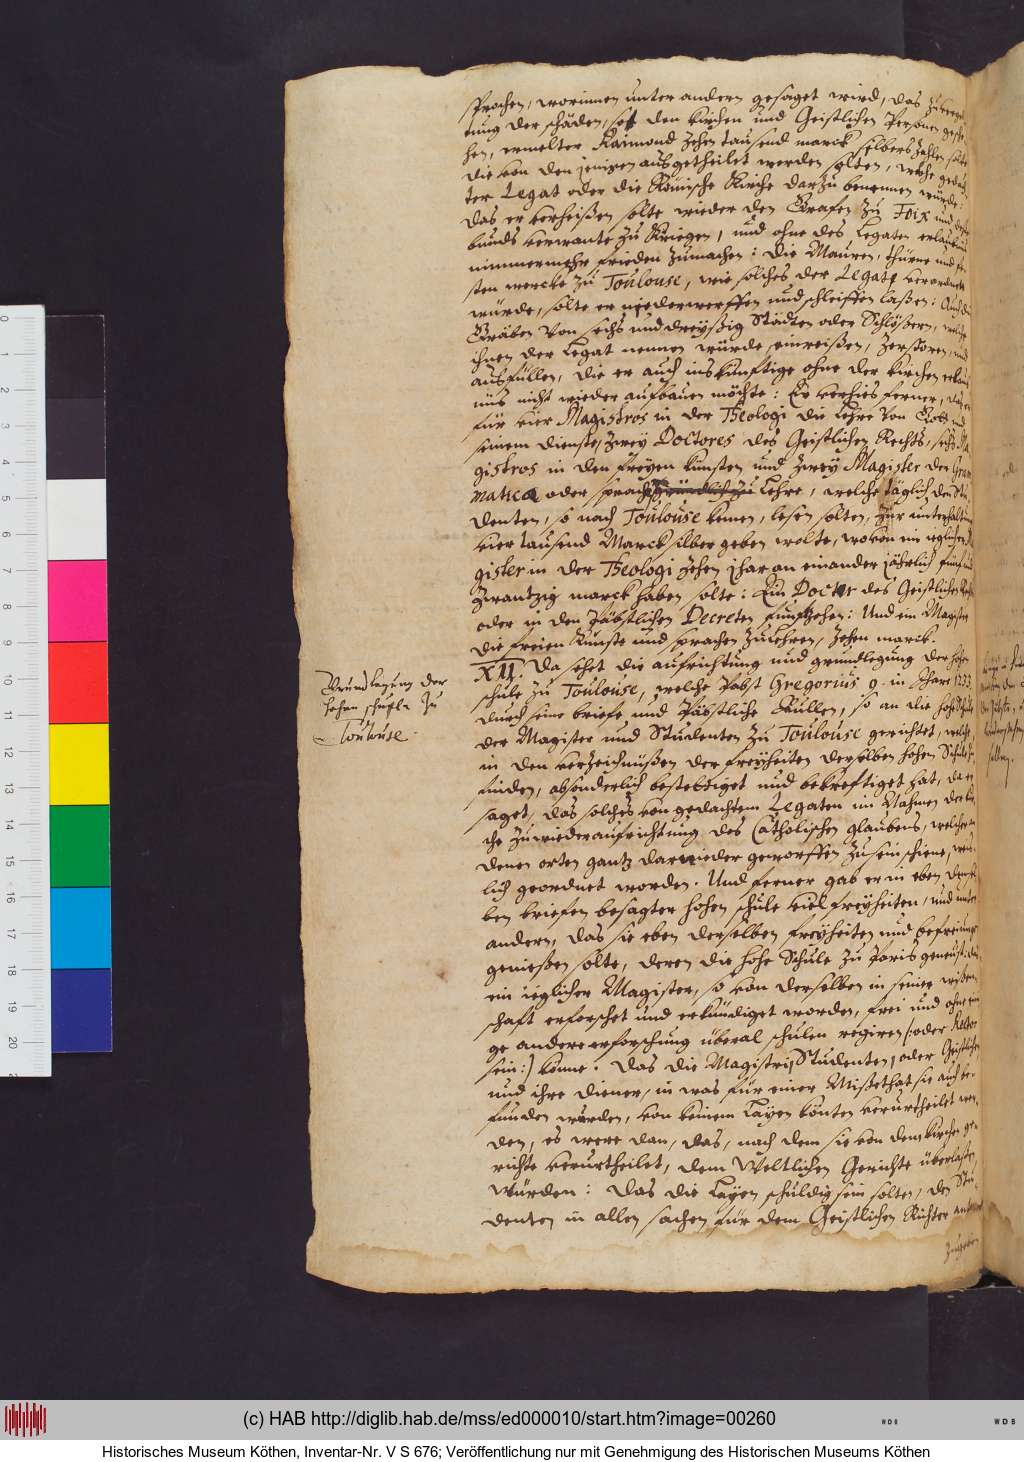 sprochen, worinnen unter andern gesaget wird, das zu
tung der schäden, so den kirchen und Geistlichen Personen gesche
hen, ermelter Raimond zehen tausend marck silbers zahlen solte
die von den jenigen ausgetheilet werden solten, welche gedach
ter Legat oder die Römische Kirche darzu benennen würde:
das er verheißen solte wieder den Grafen zu Foix und
bunds verwante zu Kriegen, und ohne des Legaten erlaubnüs
nimmermehr frieden zumachen: die Mauren, thürne und fe
sten wercke zu Toulouse, wie solches der Legate verordnen
würde, solte er niederwerffen und schleiffen laßen: Auch die
Gräben von sechs und dreyßig Städten oder Schlößern, welche
ihnen der Legat nennen würde, einreißen, zerstören, und
ausfüllen, die er auch ins künftige ohne der kirchen erlaub
nüs nicht wieder aufbauen möchte: Er verhies ferner, das er
für vier Magistros in der Theologi die Lehre von Gott und
seinem dienste, zwey Doctores des Geistlichen Rechts, sechs Ma
gistros in den freyen künsten und zwey Magister der Gram
matica oder sprach Lehre, welche täglich den Stu
denten, so nach Toulouse kemen, lesen solten, zur unterhaltung
vier tausend Marck silber geben wolte, wovon ein ieglicher Ma
gister in der Theologi zehen Jhar an einander jährlich fünf und
zwantzig marck haben solte: Ein Doctor des Geistliches Rechts
oder in den Päbstlichen Decreten funftzehen: Und ein Magister
die freien Künste und sprachen zulehren, zehen marck.
XII. Da sehet die aufrichtung und grundlegung der hohen
schule zu Toulouse, welche Pabst Gregorius 9. in Jhare 1233.
durch seine briefe und Päbstliche Büllen, so an die hohe Schule
der Magister und Studenten zu Toulouse gerichtet, welche
in den verzeichnüßen der freyheiten derselben hohen Schule zu
finden, absonderlich bestetiget und bekreftiget hat, da er
saget, das solches von gedachtem Legaten im Nahmen der kir
che zu wiederaufrichtung des Catholischen glaubens, welcher in
denen orten gantz darnieder geworffen zu sein schiene, weis
lich geordnet worden. Und ferner gab er in eben densel
ben briefen besagter hohen schule viel freyheiten, und unter
andern, das sie eben derselben freyheiten und befreiung
genießen solte, deren die hohe Schule zu Paris geneust: das
ein ieglicher Magister, so von derselben in seiner wißen
schaft erforschet und erkündiget worden, frei und ohne eini
ge andere erforschung überal schulen regiren (: oder Rector
sein:) könne. Das die Magistri, Studenten, oder Geistliche
und ihre diener, in was für einer Mißethat sie auch be
funden würden, von keinem Layen könten verurtheilet wer
den, es were dan, das, nach dem sie von dem kirchen ge
richte verurtheilet, dem Weltlichen Gerichte überlaßen
würden: Das die Layen schuldig sein solten, den Stu
denten in allen sachen für dem Geistlichen Richter antwort
zugeben
Grundlegung der
hohen schule zu
Toulouse.
(c) HAB http://diglib.hab.de/mss/ed000010/start.htm?image=00260
Historisches Museum Köthen, Inventar-Nr. V S 676; Veröffentlichung nur mit Genehmigung des Historischen Museums Köthen